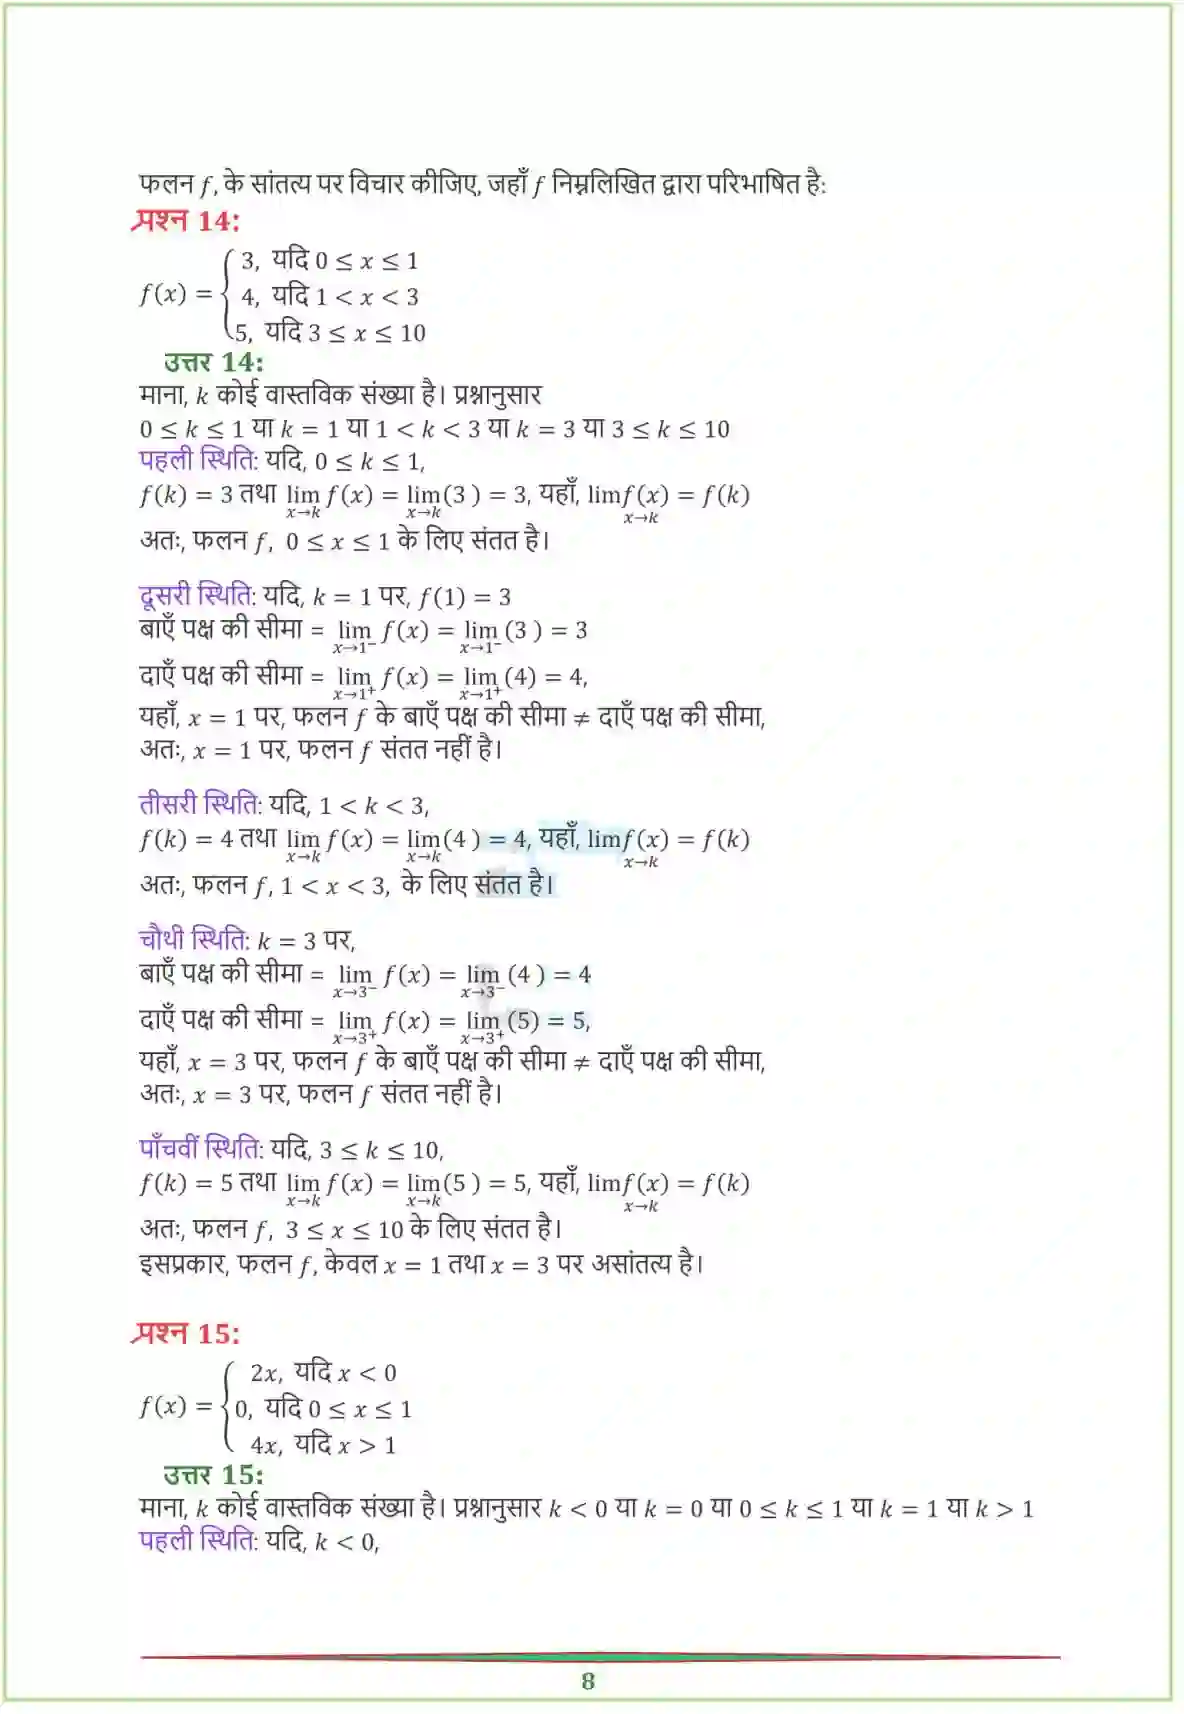 फलन f, के सांतत्य पर विचार कीजिए, जहाँ f निम्नलिखित द्वारा परिभाषित है:
प्रश्न 14:
f(x) = { 3, यदि 0 ≤ x ≤ 1
4, यदि 1 < x < 3
5, यदि 3 ≤ x ≤ 10
उत्तर 14:
माना, k कोई वास्तविक संख्या है। प्रश्नानुसार
0 ≤ k ≤ 1 या k = 1 या 1 < k < 3 या k = 3 या 3 ≤ k ≤ 10
पहली स्थिति: यदि, 0 ≤ k ≤ 1,
f(k) = 3 तथा lim x→k f(x) = lim x→k (3 ) = 3, यहाँ, lim x→k f(x) = f(k)
अतः, फलन f, 0 ≤ x ≤ 1 के लिए संतत है।
दूसरी स्थिति: यदि, k = 1 पर, f(1) = 3
बाएँ पक्ष की सीमा = lim x→1⁻ f(x) = lim x→1⁻ (3 ) = 3
दाएँ पक्ष की सीमा = lim x→1⁺ f(x) = lim x→1⁺ (4) = 4,
यहाँ, x = 1 पर, फलन f के बाएँ पक्ष की सीमा ≠ दाएँ पक्ष की सीमा,
अतः, x = 1 पर, फलन f संतत नहीं है।
तीसरी स्थिति: यदि, 1 < k < 3,
f(k) = 4 तथा lim x→k f(x) = lim x→k (4 ) = 4, यहाँ, lim x→k f(x) = f(k)
अतः, फलन f, 1 < x < 3, के लिए संतत है।
चौथी स्थिति: k = 3 पर,
बाएँ पक्ष की सीमा = lim x→3⁻ f(x) = lim x→3⁻ (4 ) = 4
दाएँ पक्ष की सीमा = lim x→3⁺ f(x) = lim x→3⁺ (5) = 5,
यहाँ, x = 3 पर, फलन f के बाएँ पक्ष की सीमा ≠ दाएँ पक्ष की सीमा,
अतः, x = 3 पर, फलन f संतत नहीं है।
पाँचवीं स्थिति: यदि, 3 ≤ k ≤ 10,
f(k) = 5 तथा lim x→k f(x) = lim x→k (5 ) = 5, यहाँ, lim x→k f(x) = f(k)
अतः, फलन f, 3 ≤ x ≤ 10 के लिए संतत है।
इसप्रकार, फलन f, केवल x = 1 तथा x = 3 पर असांतत्य है।
प्रश्न 15:
f(x) = { 2x, यदि x < 0
0, यदि 0 ≤ x ≤ 1
4x, यदि x > 1
उत्तर 15:
माना, k कोई वास्तविक संख्या है। प्रश्नानुसार k < 0 या k = 0 या 0 ≤ k ≤ 1 या k = 1 या k > 1
पहली स्थिति: यदि, k < 0,
8